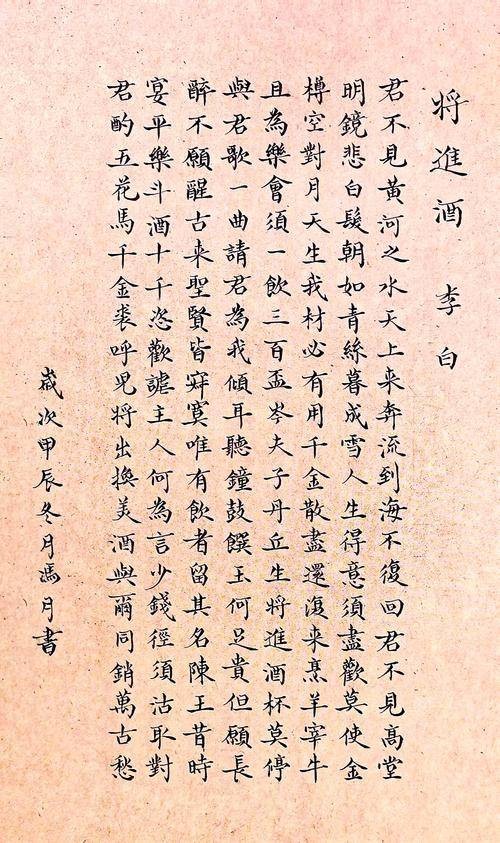 将進酒 李白
君不見黃河之水天上来奔流到海不復回君不見高堂
明鏡悲白髮朝如青絲暮成雪人生得意須盡歡莫使金
樽空對月天生我材必有用千金散盡還復来烹羊宰牛
且為樂會須一飲三百盃岑夫子丹丘生将進酒杯莫停
與君歌一曲請君為我傾耳聽鐘鼓饌玉何足貴但願長
醉不願醒古来聖賢皆寂寞唯有飲者留其名陳王昔時
宴平樂斗酒十千恣歡謔主人何為言少錢徑須沽取對
君酌五花馬千金裘呼児将出換美酒與爾同銷萬古愁
歲次甲辰冬月馮月書